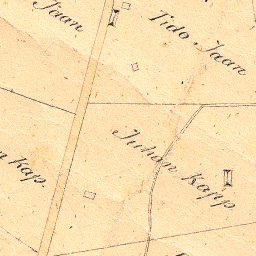 Jaan
Tido Jaan
Juhan Kapp
n Kap.